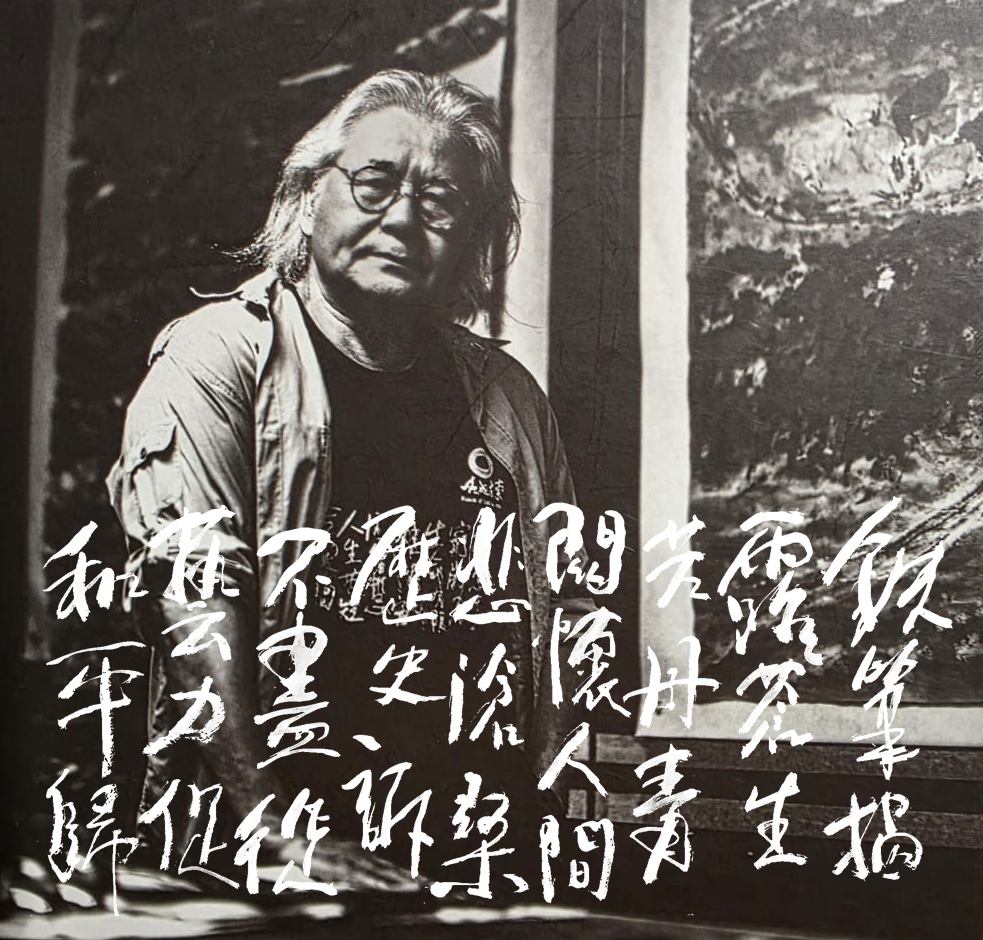 鉄筆揭
露蒼生
苦丹青
關懷人間
悲滄桑
歷史、訴
不盡從
藝力促
和平歸